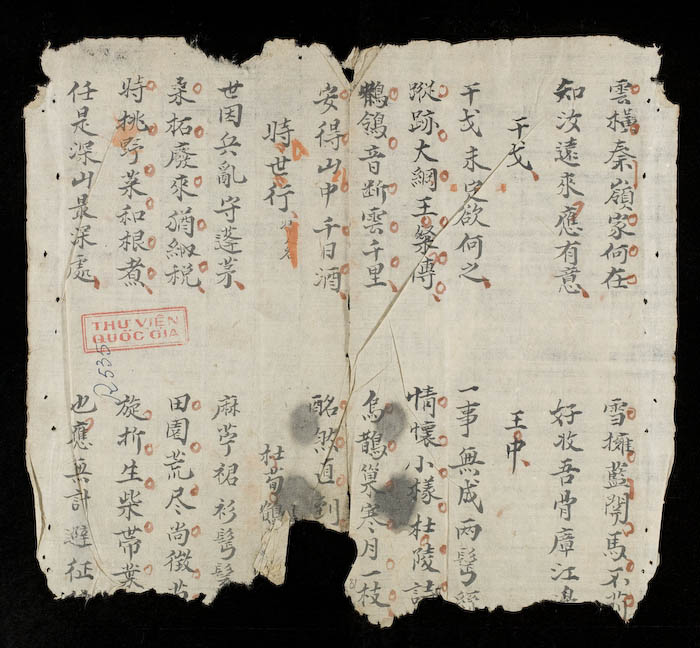 雲橫秦嶺家何在 雪擁藍關馬不前
知汝遠來應有意 好收吾骨瘴江邊
干戈 王中
干戈未定欲何之 一事無成兩鬢
蹤跡大綱王粲傳 情懷小樣杜陵詩
鶺鴒音斷雲千里 烏鵲巢寒月一枝
安得山中千日酒 酩然直到
時世行 杜荀鶴
世因兵亂守蓬茅 麻苧裙衫鬢髮
桑柘廢來猶納税 田園荒尽尚徵苗
時挑野菜和根煮 旋折生柴帶葉
任是深山最深處 也應無計避征
THƯ VIỆN
QUỐC GIA
R535